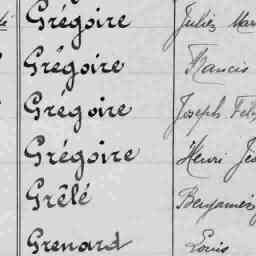 Grégoire Jules
Grégoire Francis
Grégoire Joseph
Grégoire Henri
Grêlé Benjamin
Grenard Louis